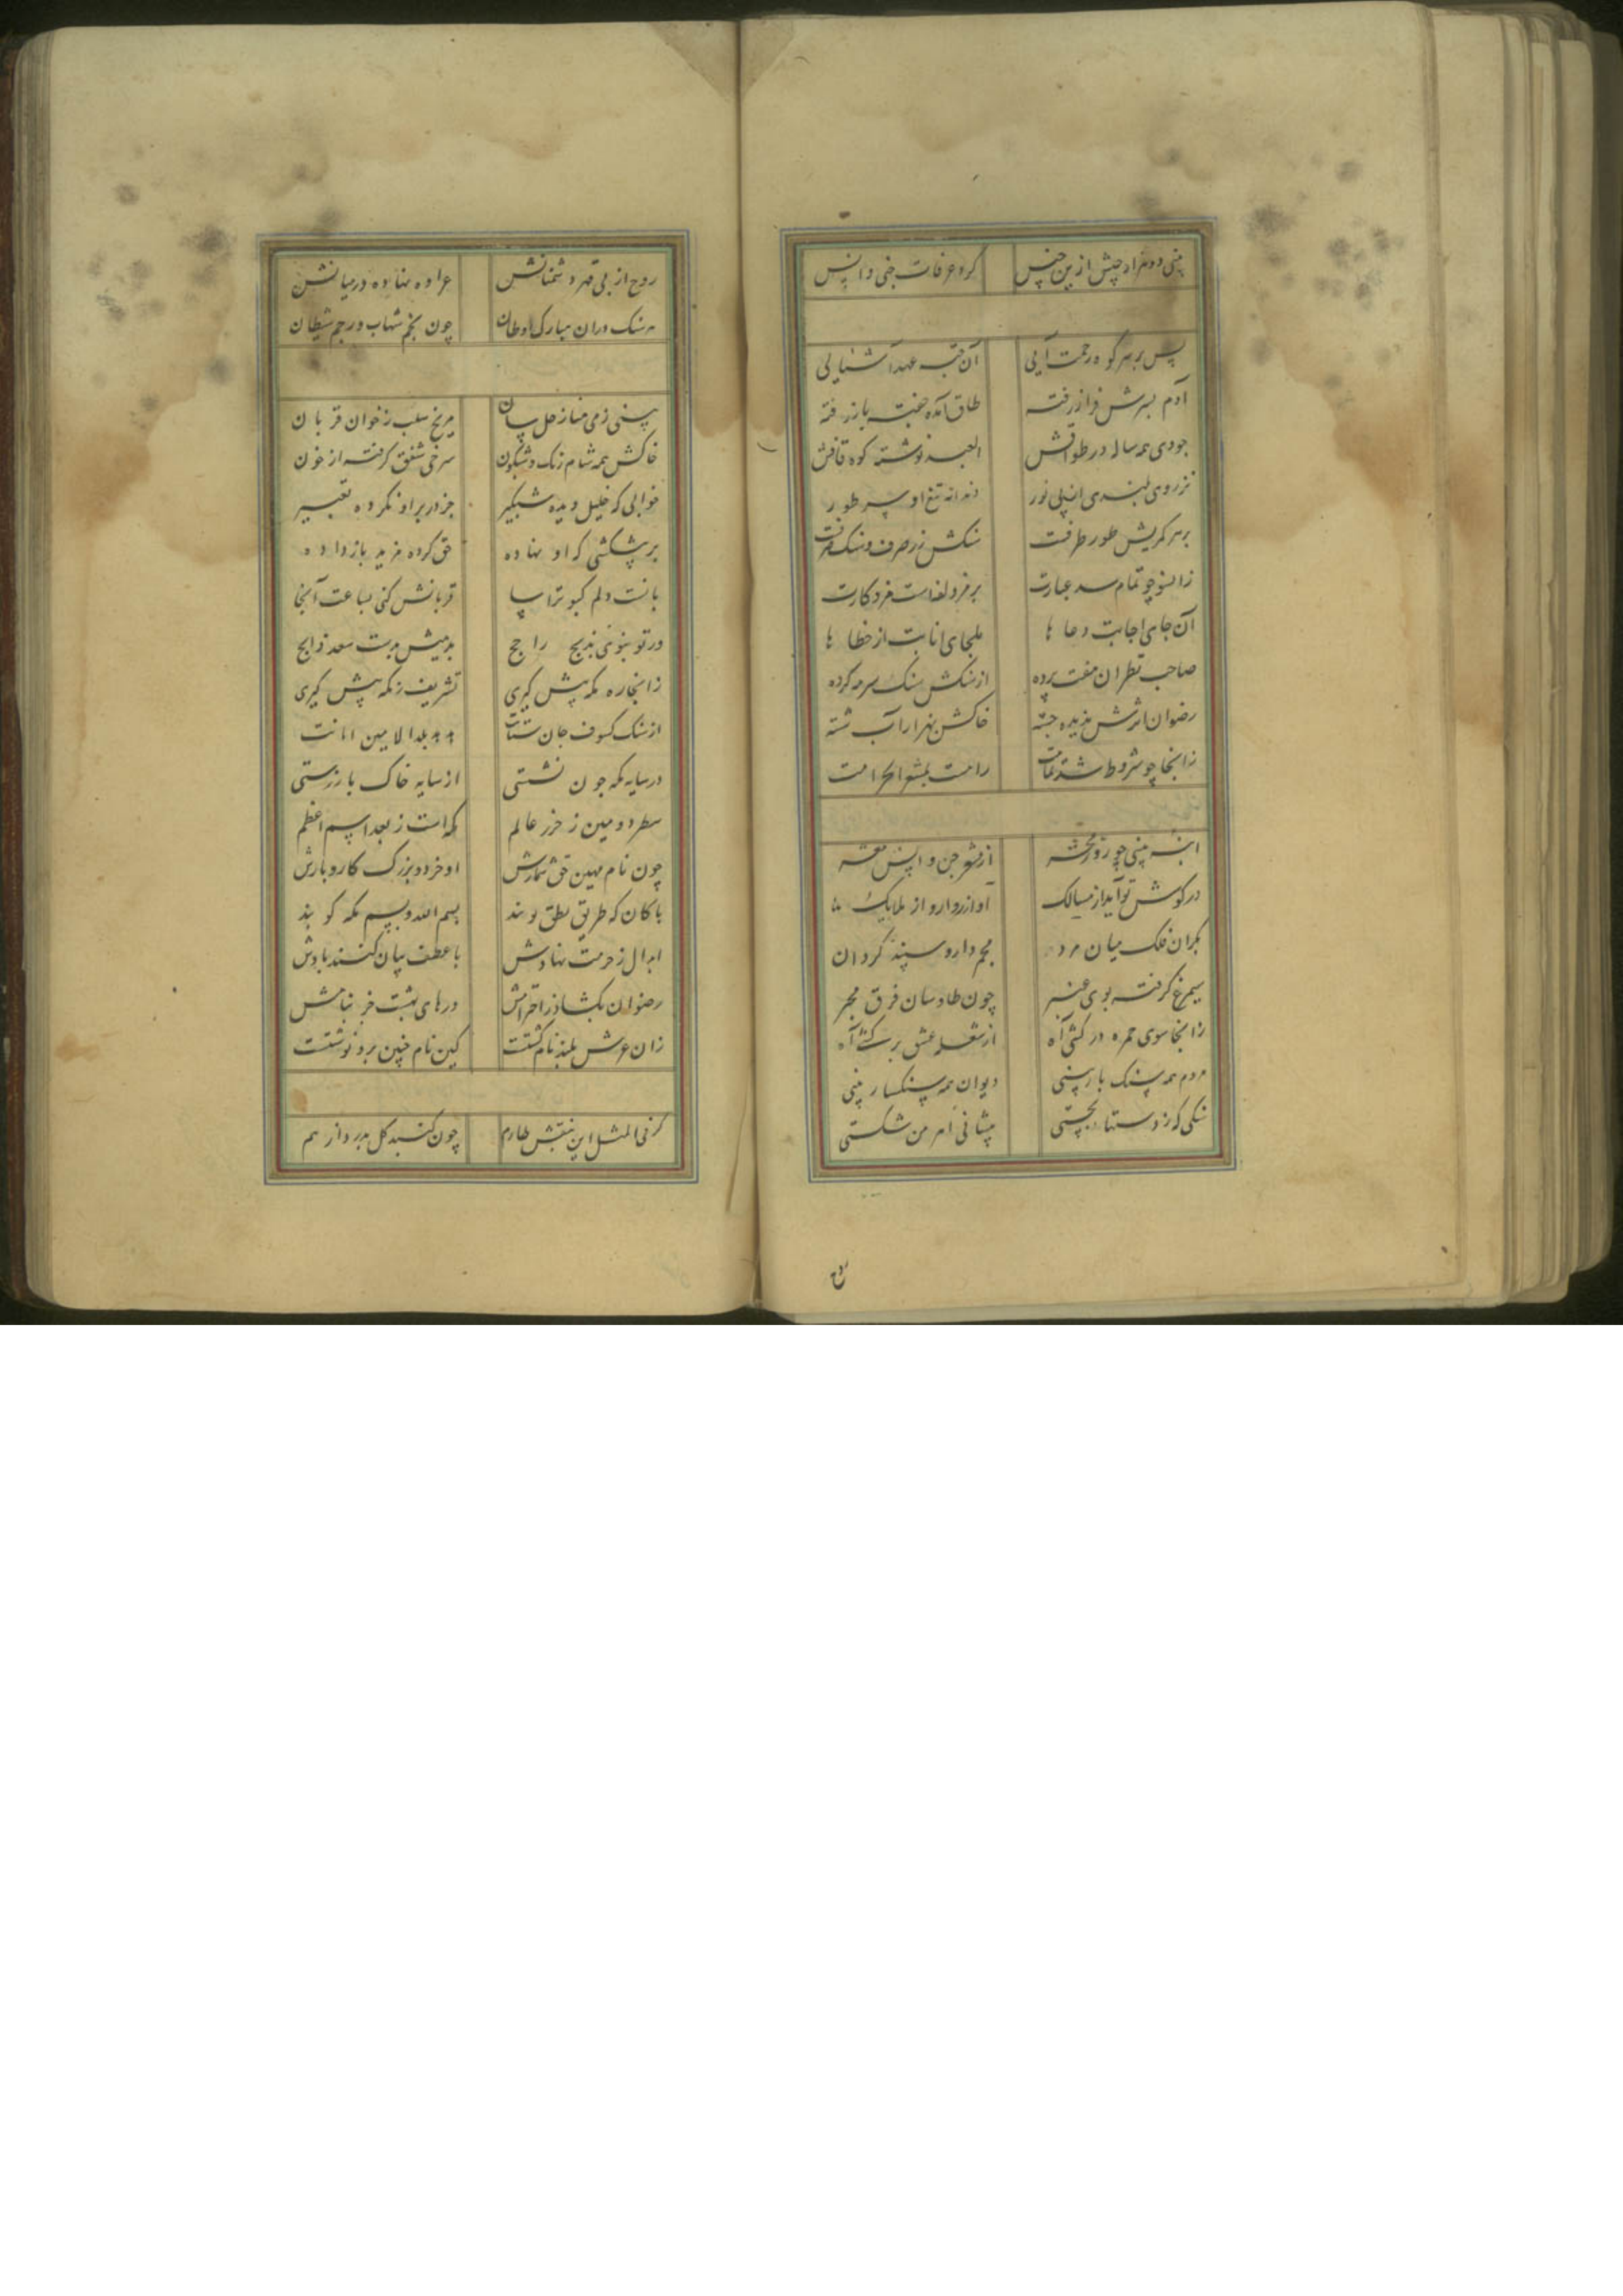 بینی دو هزار جیش ازین جنس گرد عرفات جنی و انس
پس بر سر کوه رحمت آیی آن جبه عهد آشنایی
آدم بسرش فراز رفته طاق آمده جفت باز رفته
جودی همه ساله در طوافش العبد نوشته کوه قافش
نزروی بلندی ازپی نور دندانه تیغ او سر طور
بر سر کمریش طور طرفت سنکش زر صرف و سنک صرفت
زانسو چو تمام شد عبارت
آن جای اجابت دعا ها ملجای انابت از خطا ها
صاحب نظران هفت پرده از سنکش سنک سرمه کرده
رضوان اثرش بدیده جسته خاکش بهزار آب شسته
زانجا چو شروط شد تمامت رامت بمشعر الحرامت
انبه بینی چو روز محشر از مشعر جن و انس معشر
در کوش تو آید از مسالک آواز روارو از ملایک
بکران فلک میان مردان مجمر دار و سپند کردان
سیمرغ کرفته بوی عنبر چون طاوسان فرق مجمر
زانجا سوی جمره در کشی راه از شعله عشق بر کشی آه
مردم همه سنک بار بینی دیوان همه سنکسار بینی
سنکی که ز دستها بجستی پیشانی اهرمن شکستی
روح از پی قهر دشمنانش عراده نهاده در میانش
هر سنک دران مبارک اوطان چون نجم شهاب و رجم شیطان
بینی زمی منا زحل سان مریخ سلب ز خون قربان
خاکش همه شام رنک و شبکون سرخی شفق کرفته از خون
خوابی که خلیل دیده شبکیر جز در بر او نکرده تعبیر
هر پیشکشی که او نهاده حق کرده مزید باز داده
قربانش کنی بساعت آنجا
ور تو بنوی بذبح راجح بدهیش بدست سعد ذابح
زانجا ره مکه پیش کیری تشریف ز مکه پیش کیری
از سنک کسوف جان ستانت بدهد بلد الامین امانت
در سایه مکه چون نشستی از سایه خاک باز رستی
سطر دومین ز حرز عالم مکه است ز بعد اسم اعظم
چون نام مهین حق شمارش او خرد و بزرک کار و بارش
پاکان که طریق نطق پویند بسم الله و بسم مکه کویند
ابدال ز حرمت نهادش با عطف بیان کنند یادش
رضوان بکشاد ز احترامش درهای بهشت جز بنامش
زان عرش بلند نام کشتست کین نام چنین برو نوشتست
کر فی المثل این بنفش طارم چون کنبد کل بدرد از هم